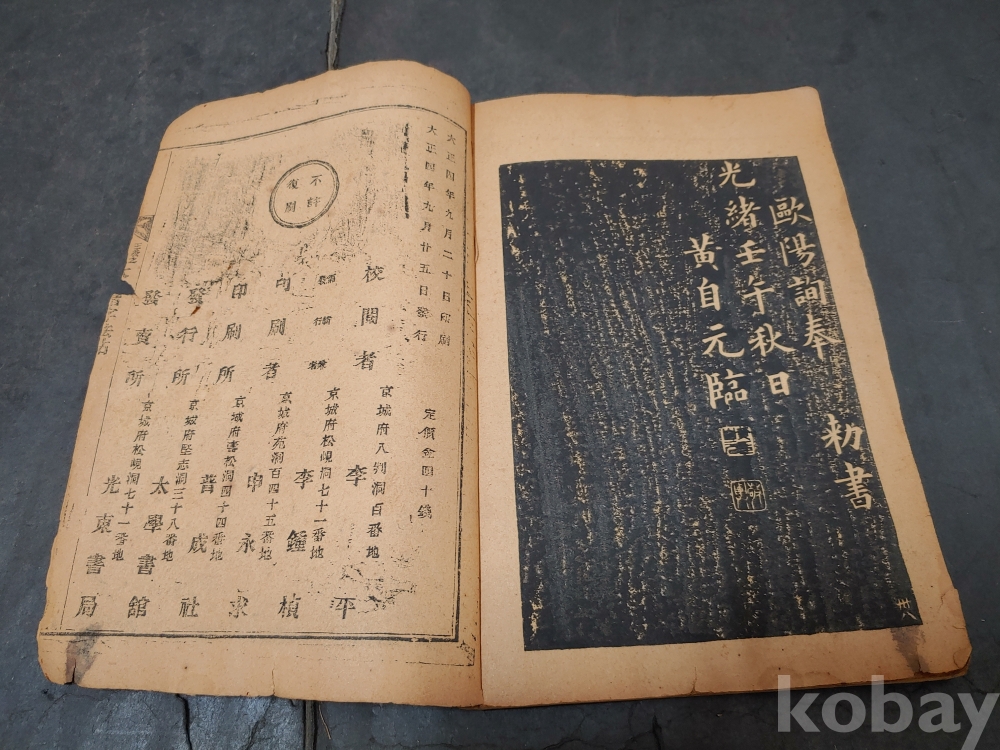 歐陽詢奉 勅書
光緒壬午秋日
黃自元臨
大正四年九月二十日印刷
大正四年九月廿五日發行
不許
複刻
定價金四十錢
校閱者 京城府八判洞百番地 李 平
發行者 京城府松峴洞七十一番地 李鍾楨
印刷者 京城府苑洞百四十五番地 申永求
印刷所 京城府壽松洞四十四番地 普成社
發行所 京城府堅志洞三十八番地 太學書館
發賣所 京城府松峴洞七十一番地 光東書局
kobay